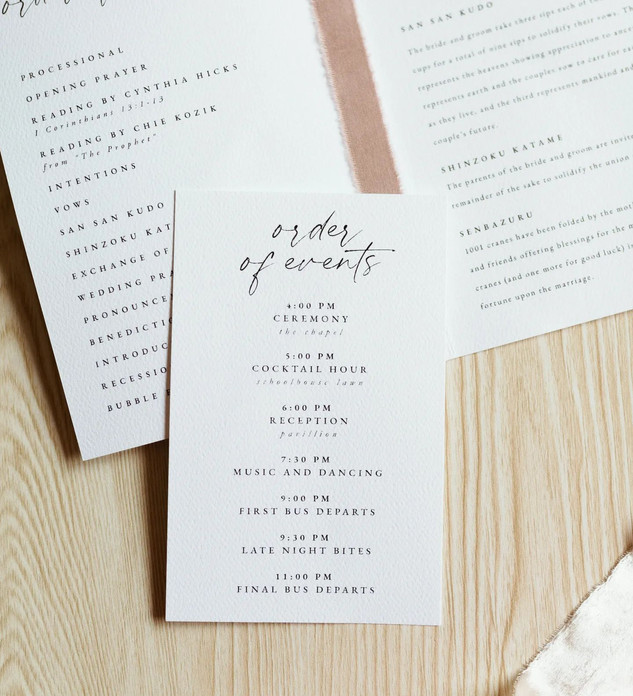 PROCESSIONAL
OPENING PRAYER
READING BY CYNTHIA HICKS
1 Corinthians 13:1-13
READING BY CHIE KOZIK
from "The Prophet"
INTENTIONS
VOWS
SAN SAN KUDO
SHINZOKU KAT
EXCHANGE OF
WEDDING PRA
PRONOUNCE
BENEDICTIO
INTRODUC
RECESSIO
BUBBLE
SAN SAN KUDO
The bride and groom take three sips each of
cups for a total of nine sips to solidify their vows. Th
represents the heavens showing appreciation to ance
represents earth and the couples vow to care for ea
as they live, and the third represents mankind and
couple's future.
SHINZOKU KATAME
The parents of the bride and groom are invite
remainder of the sake to solidify the union
SENBAZURU
1001 cranes have been folded by the mot
and friends offering blessings for the m
cranes (and one more for good luck) i
fortune upon the marriage.
order
of events
4:00 PM
CEREMONY
the chapel
5:00 PM
COCKTAIL HOUR
schoolhouse lawn
6:00 PM
RECEPTION
pavillion
7:30 PM
MUSIC AND DANCING
9:00 PM
FIRST BUS DEPARTS
9:30 PM
LATE NIGHT BITES
11:00 PM
FINAL BUS DEPARTS